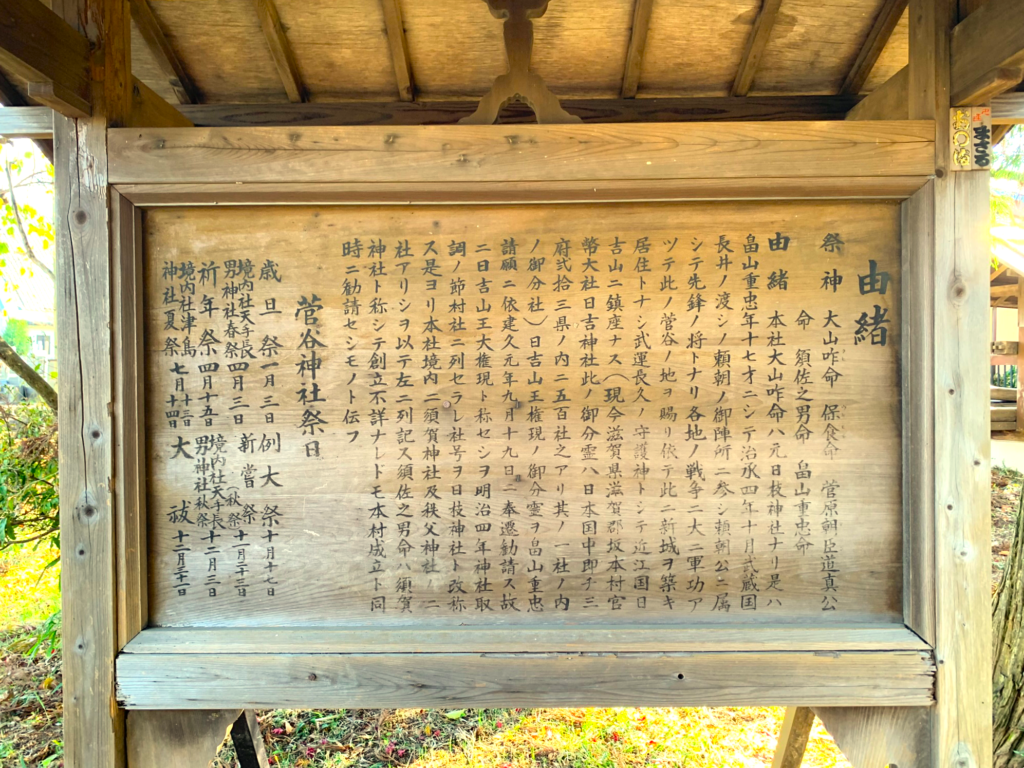 由緒
祭神 大山咋命 保食命 菅原朝臣道真公
命 須佐之男命 畠山重忠命
由緒 本社大山咋命ハ元日枝神社ナリ是ハ
畠山重忠年十七才ニシテ治承四年十月武蔵国
長井ノ渡シノ頼朝ノ御陣所ニ参シ頼朝公ニ属
シテ先鋒ノ将トナリ各地ノ戦争ニ大ニ軍功ア
ツテ此ノ菅谷ノ地ヲ賜リ依テ此ニ新城ヲ築キ
居住トナシ武運長久ノ守護神トシテ近江国日
吉山ニ鎮座ナス（現今滋賀県滋賀郡坂本村官
幣大社日吉神社此ノ御分霊ハ日本国中即チ三
府弐拾三県ノ内ニ五百社之アリ其ノ一社ノ内
ノ御分社）日吉山王権現ノ御分霊ヲ畠山重忠
請願ニ依建久元年九月十九日ニ奉遷勧請ス故
ニ日吉山王大権現ト称セシヲ明治四年神社取
調ノ節村社ニ列セラレ社号ヲ日枝神社ト改称
ス是ヨリ本社境内ニ須賀神社及秩父神社ノ二
社アリシヲ以テ左ニ列記ス須佐之男命ハ須賀
神社ト称シテ創立不詳ナレドモ本村成立ト同
時ニ勧請セシモノト伝フ
菅谷神社祭日
歳旦祭 一月三日 例大祭 十月十七日
境内社天手長男神社春祭 四月三日 新嘗祭（秋祭） 十一月二十三日
祈年祭 四月十五日 境内社天手長男神社秋祭 十二月三日
境内社津島神社夏祭 七月十三日十四日 大祓 十二月三十一日
まさる